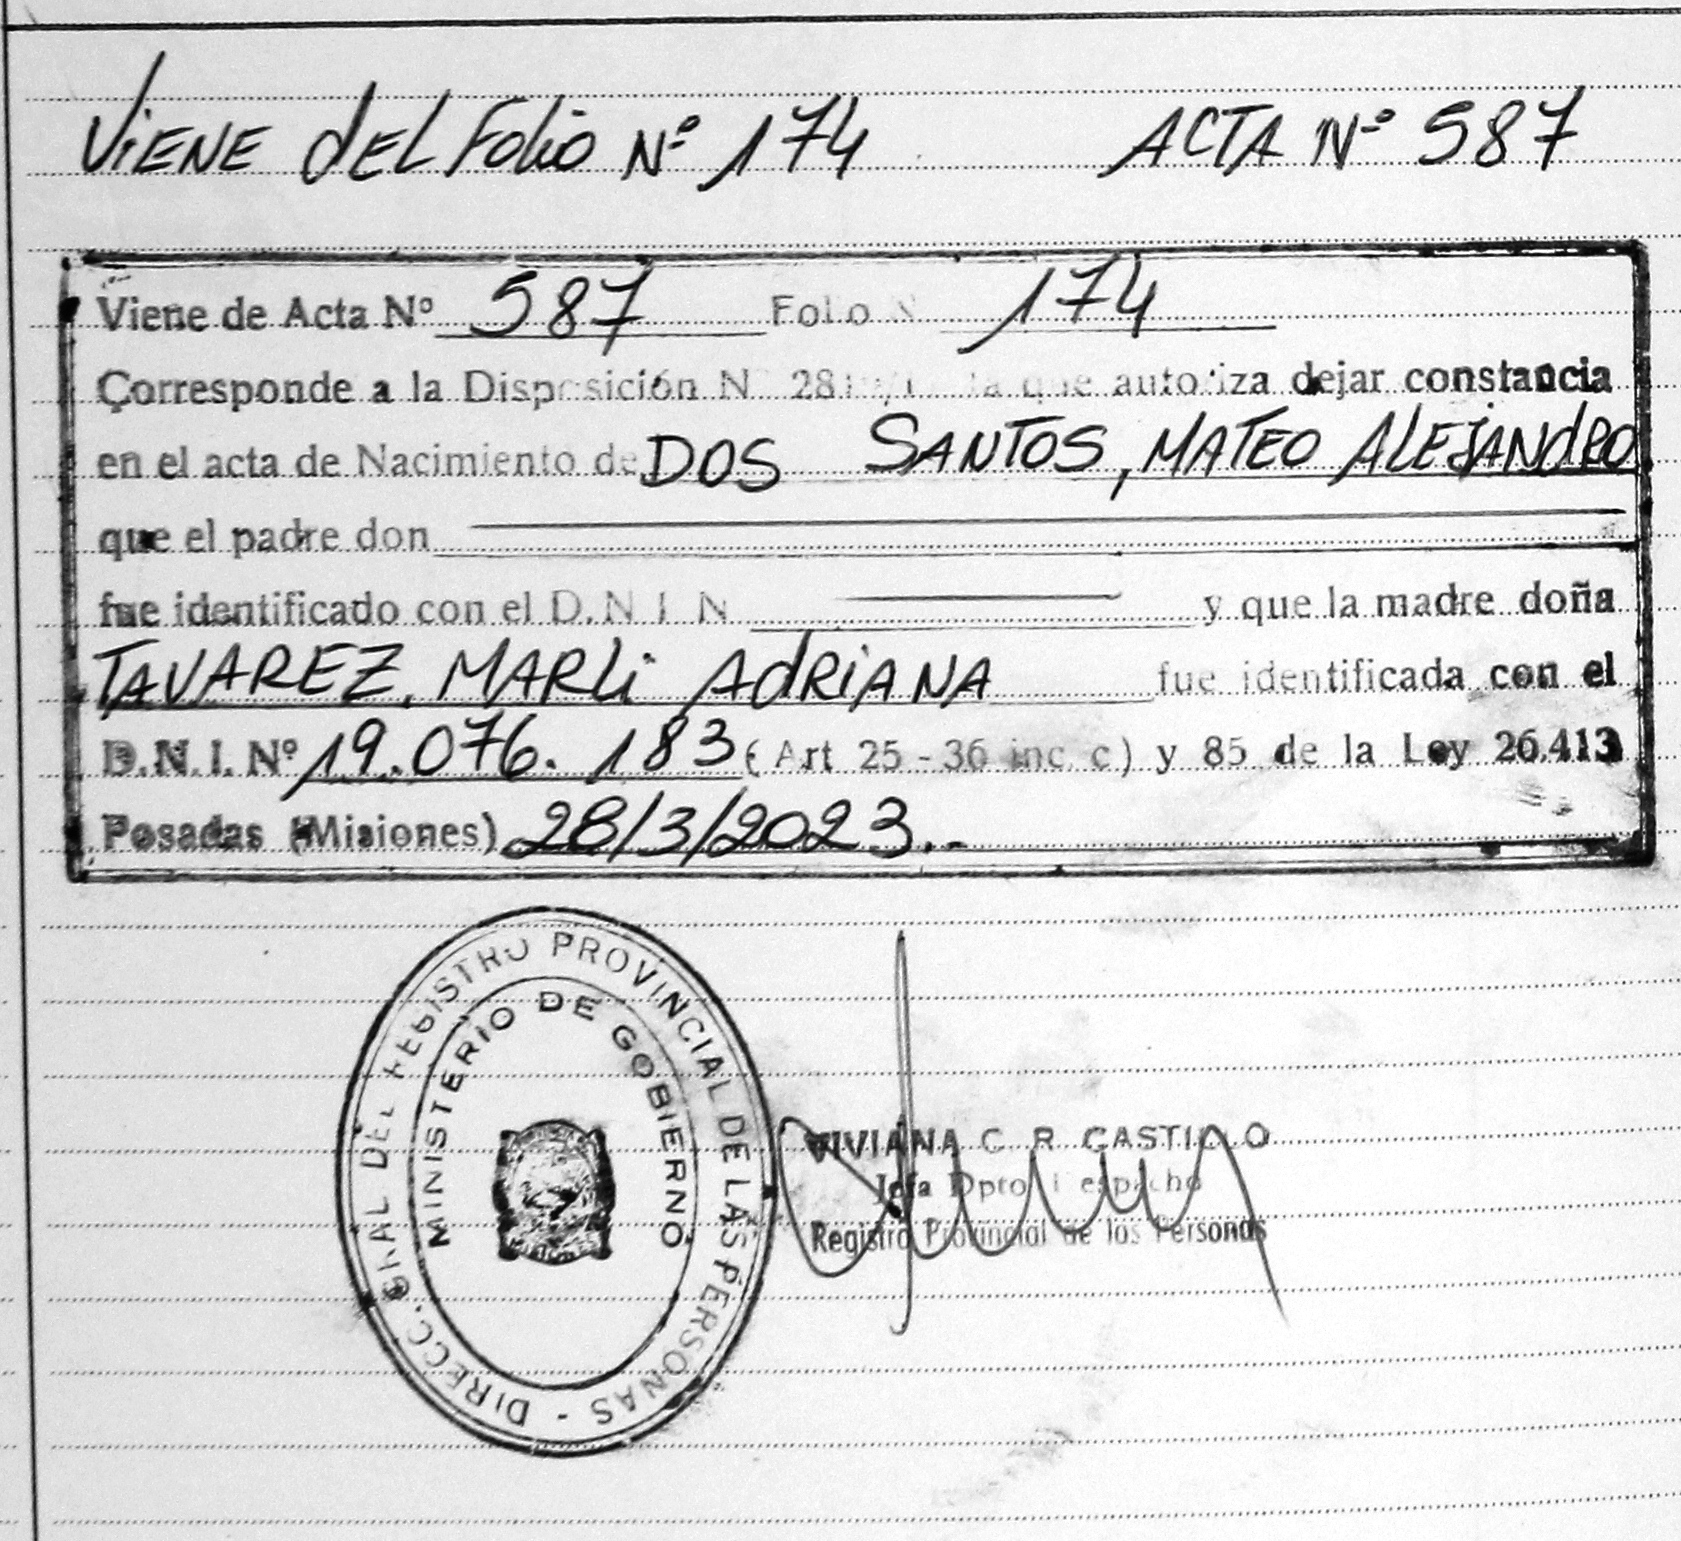 ViENE dEL Folio Nº 174 ACTA Nº 587
Viene de Acta Nº 587 Folio N 174
Corresponde a la Disposición N 28 la que autoriza dejar constancia
en el acta de Nacimiento de DOS SANTOS, MATEO ALEJANdRO
que el padre don
fue identificado con el D.N.I N y que la madre doña
TAVAREZ, MARLi AdRiANA fue identificada con el
D.N.I. Nº 19.076.183 (Art 25 - 36 inc c) y 85 de la Ley 26.413
Posadas (Misiones) 28/3/2023.-
DIRECC. GRAL DEL REGISTRO PROVINCIAL DE LAS PERSONAS -
MINISTERIO DE GOBIERNO
VIVIANA C. R. CASTILLO
Jefa Dpto Despacho
Registro Provincial de las Personas